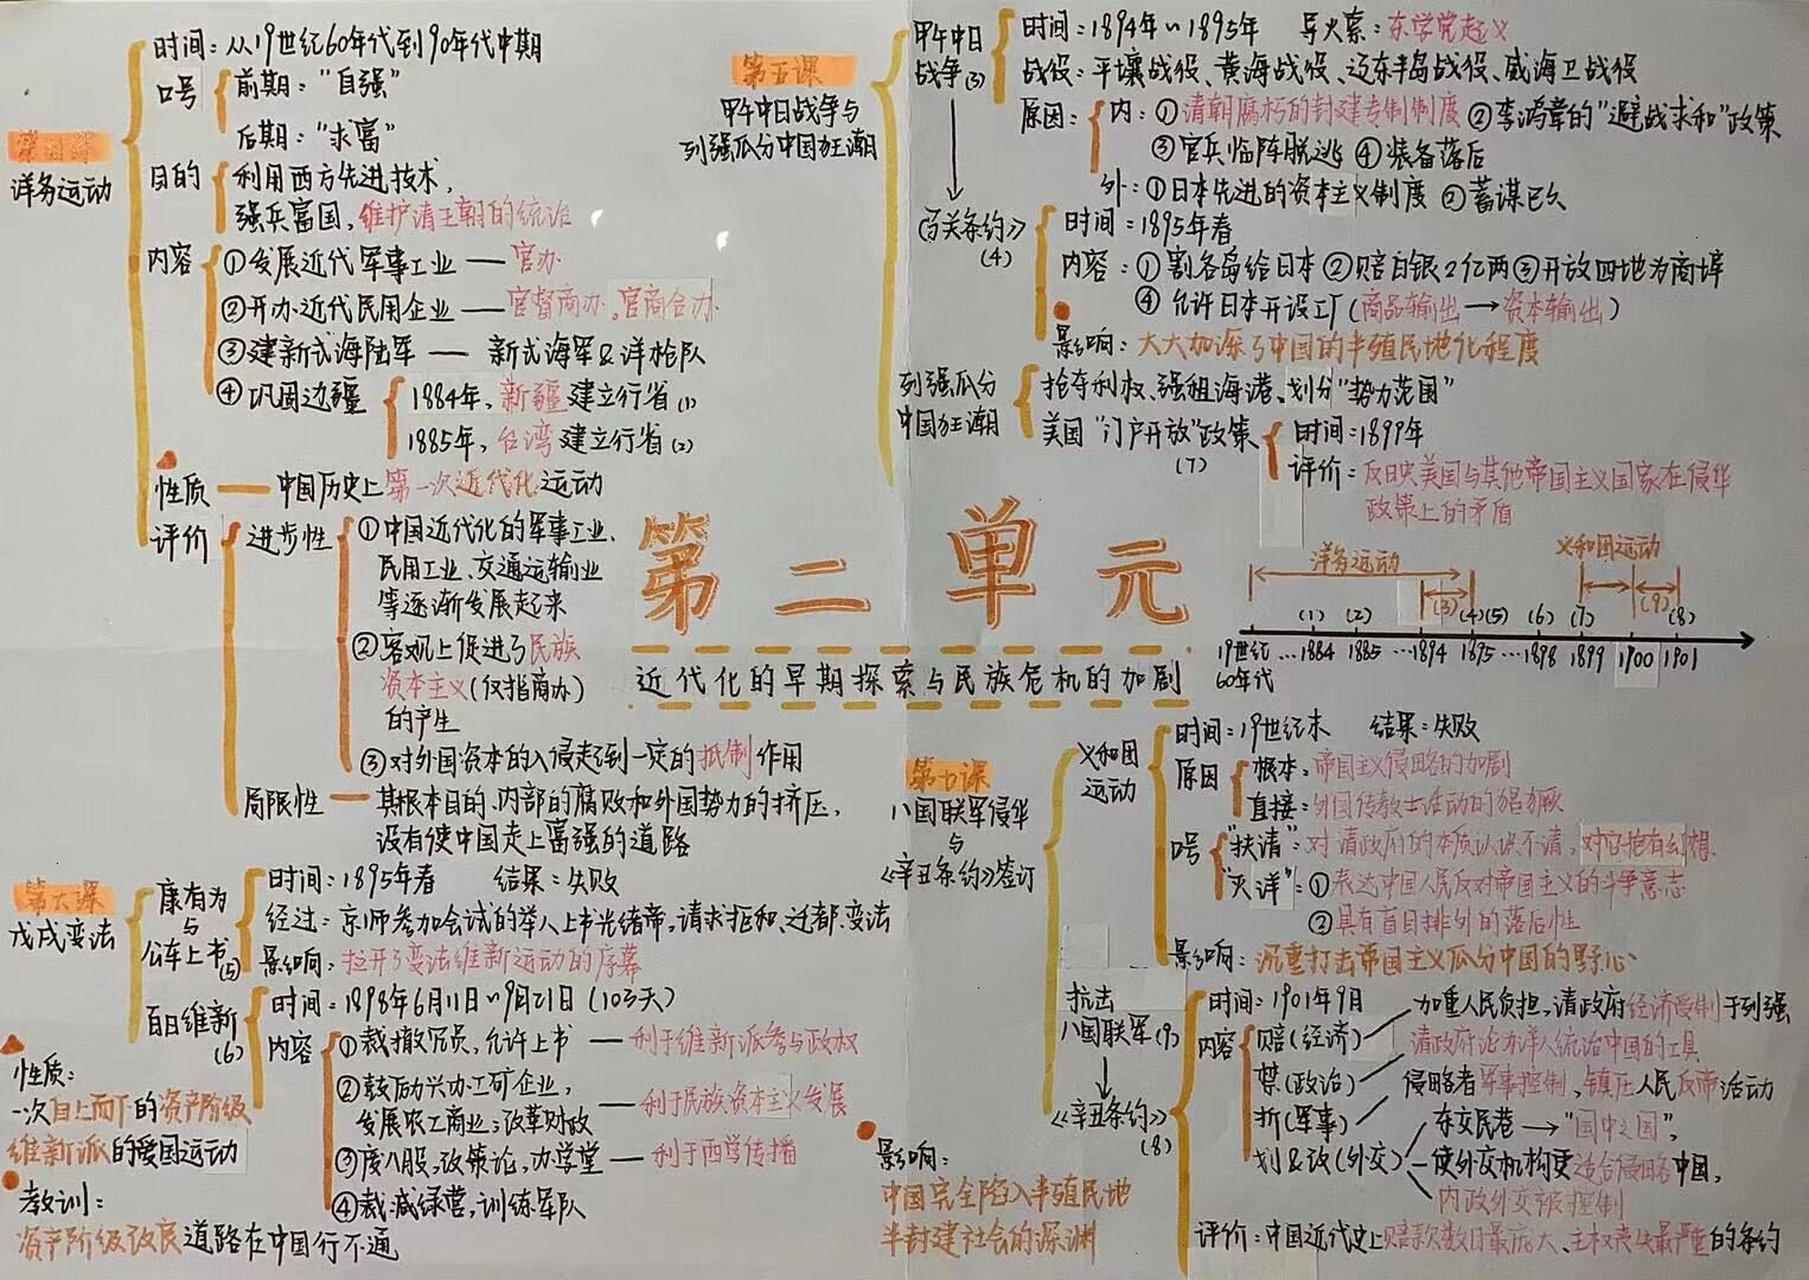 第四课
洋务运动
时间：从19世纪60年代到90年代中期
口号
前期："自强"
后期："求富"
目的
利用西方先进技术，
强兵富国，维护清王朝的统治
内容
①发展近代军事工业 — 官办
②开办近代民用企业 — 官督商办，官商合办
③建新式海陆军 — 新式海军&洋枪队
④巩固边疆
1884年，新疆建立行省(1)
1885年，台湾建立行省(2)
性质 — 中国历史上第一次近代化运动
评价
进步性
①中国近代化的军事工业、
民用工业、交通运输业
等逐渐发展起来
②客观上促进了民族
资本主义(仅指商办)
的产生
③对外国资本的入侵起到一定的抵制作用
局限性 — 其根本目的、内部的腐败和外国势力的挤压，
没有使中国走上富强的道路
第五课
甲午中日战争与
列强瓜分中国狂潮
甲午中日
战争(3)
时间：1894年~1895年 导火索：东学党起义
战役：平壤战役、黄海战役、辽东半岛战役、威海卫战役
原因：
内：①清朝腐朽的封建专制制度 ②李鸿章的"避战求和"政策
③官兵临阵脱逃 ④装备落后
外：①日本先进的资本主义制度 ②蓄谋已久
《马关条约》
(4)
时间：1895年春
内容：①割各岛给日本 ②赔白银2亿两 ③开放四地为商埠
④允许日本开设工厂(商品输出→资本输出)
影响：大大加深了中国的半殖民地化程度
列强瓜分
中国狂潮
抢夺利权、强租海港、划分"势力范围"
美国"门户开放"政策
(7)
时间：1899年
评价：反映美国与其他帝国主义国家在侵华
政策上的矛盾
第二单元
近代化的早期探索与民族危机的加剧
洋务运动 义和团运动
(1) (2) (3) (4)(5) (6) (7) (9) (8)
19世纪 …1884 1885 …1894 1895 …1898 1899 1900 1901
60年代
第六课
戊戌变法
康有为
与
公车上书(5)
时间：1895年春 结果：失败
经过：京师参加会试的举人上书光绪帝，请求拒和、迁都、变法
影响：拉开了变法维新运动的序幕
百日维新
(6)
时间：1898年6月11日~9月21日(103天)
内容
①裁撤冗员，允许上书 — 利于维新派参与政权
②鼓励兴办工矿企业，
发展农工商业；改革财政 — 利于民族资本主义发展
③废八股，改策论，办学堂 — 利于西学传播
④裁减绿营，训练军队
性质：
一次自上而下的资产阶级
维新派的爱国运动
教训：
资产阶级改良道路在中国行不通
第七课
八国联军侵华
与
《辛丑条约》签订
义和团
运动
时间：19世纪末 结果：失败
原因
根本：帝国主义侵略的加剧
直接：外国传教士活动的猖獗
口号
"扶清"：对清政府的本质认识不清，对它抱有幻想
"灭洋"：①表达中国人民反对帝国主义的斗争意志
②具有盲目排外的落后性
影响：沉重打击帝国主义瓜分中国的野心
抗击
八国联军(9)
《辛丑条约》
(8)
时间：1901年9月
内容
赔(经济) 加重人民负担，清政府经济受制于列强
禁(政治) 清政府沦为洋人统治中国的工具
拆(军事) 侵略者军事控制，镇压人民反帝活动
划&改(外交) 东交民巷→"国中之国"，
使外交机构更适合侵略中国，
内政外交被控制
评价：中国近代史上赔款数目最庞大、主权丧失最严重的条约
影响：
中国完全陷入半殖民地
半封建社会的深渊